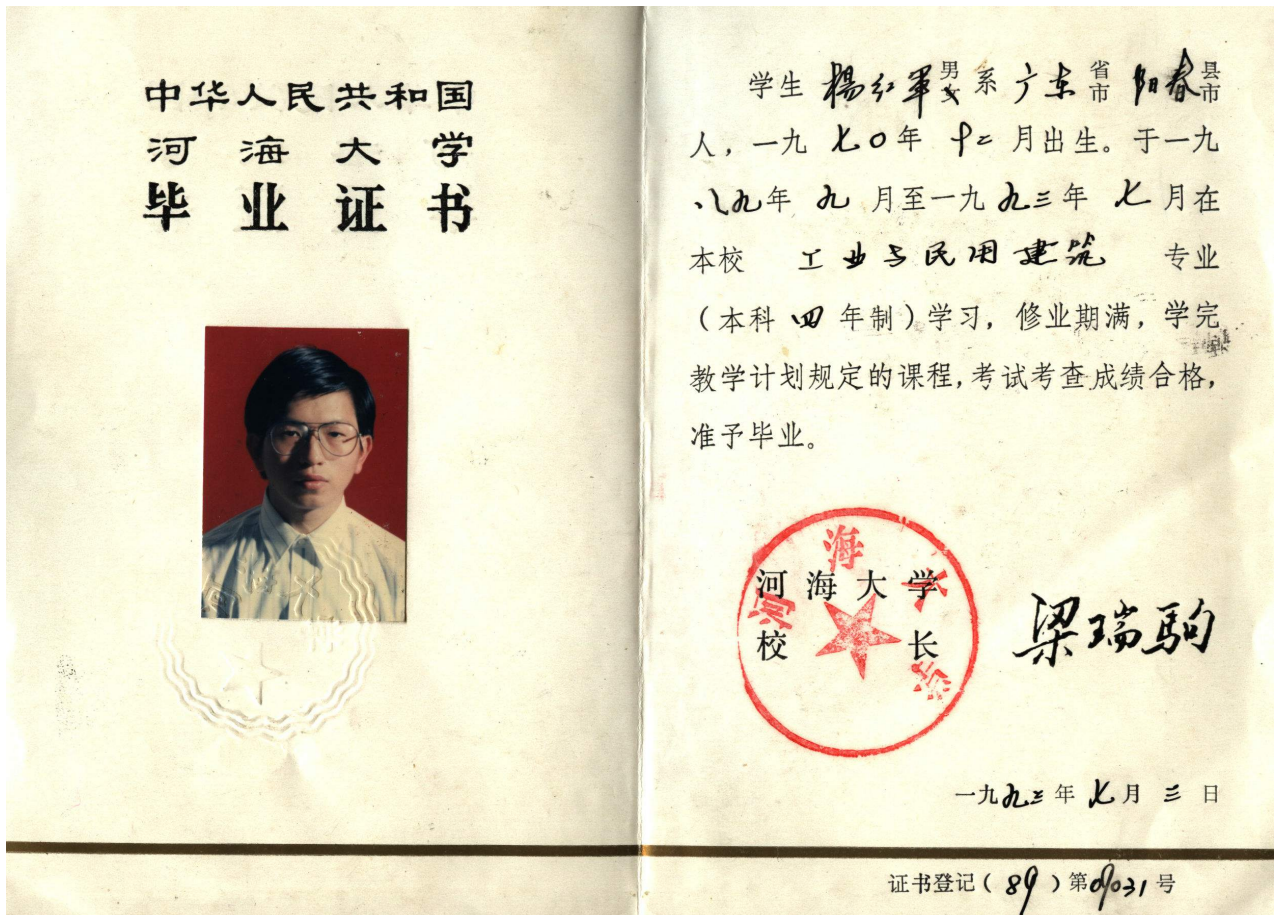 中华人民共和国
河海大学
毕业证书
学生 楊红军 男女 系 广东 省市 阳春 县市
人，一九七〇年 十二 月出生。于一九
八九年 九 月至一九九三年 七 月在
本校 工业与民用建筑 专业
（本科 四 年制）学习，修业期满，学完
教学计划规定的课程，考试考查成绩合格，
准予毕业。
河海大学
河海大学
校长 梁瑞駒
一九九三年 七月 三 日
证书登记（89）第09031号